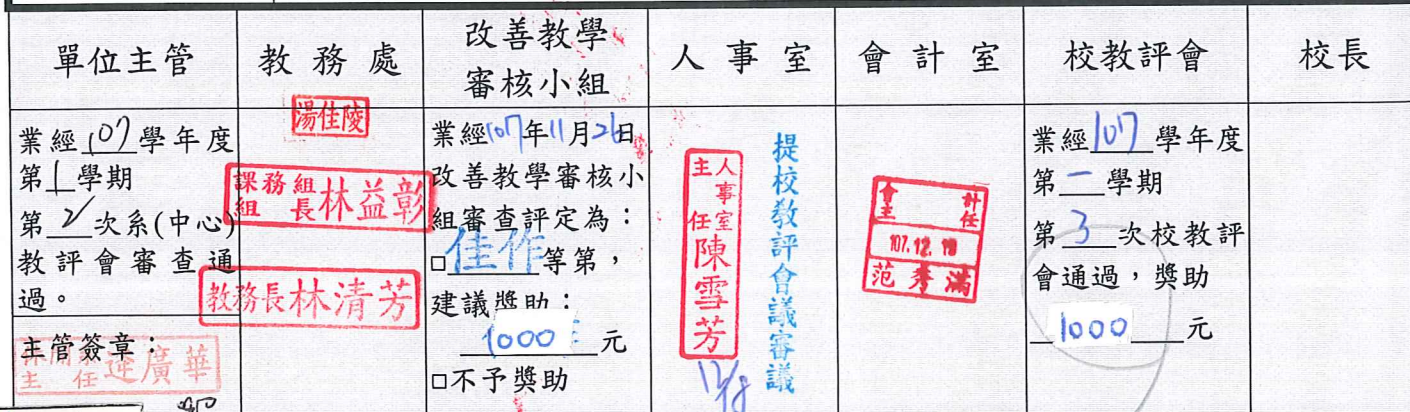 單位主管
教務處
改善教學
審核小組
人事室
會計室
校教評會
校長
業經107學年度
第1學期
第2次系(中心)
教評會審查通
過。
主管簽章：
主任
廣華
湯佳陵
課務組
組長林益彰
教務長林清芳
業經107年11月26日
改善教學審核小
組審查評定為：
□佳作等第，
建議獎助：
1000元
□不予獎助
人事室
主任
陳雪芳
提校教評會議審議
會計
主任
107.12.10
范秀滿
業經107學年度
第一學期
第3次校教評
會通過，獎助
1000元